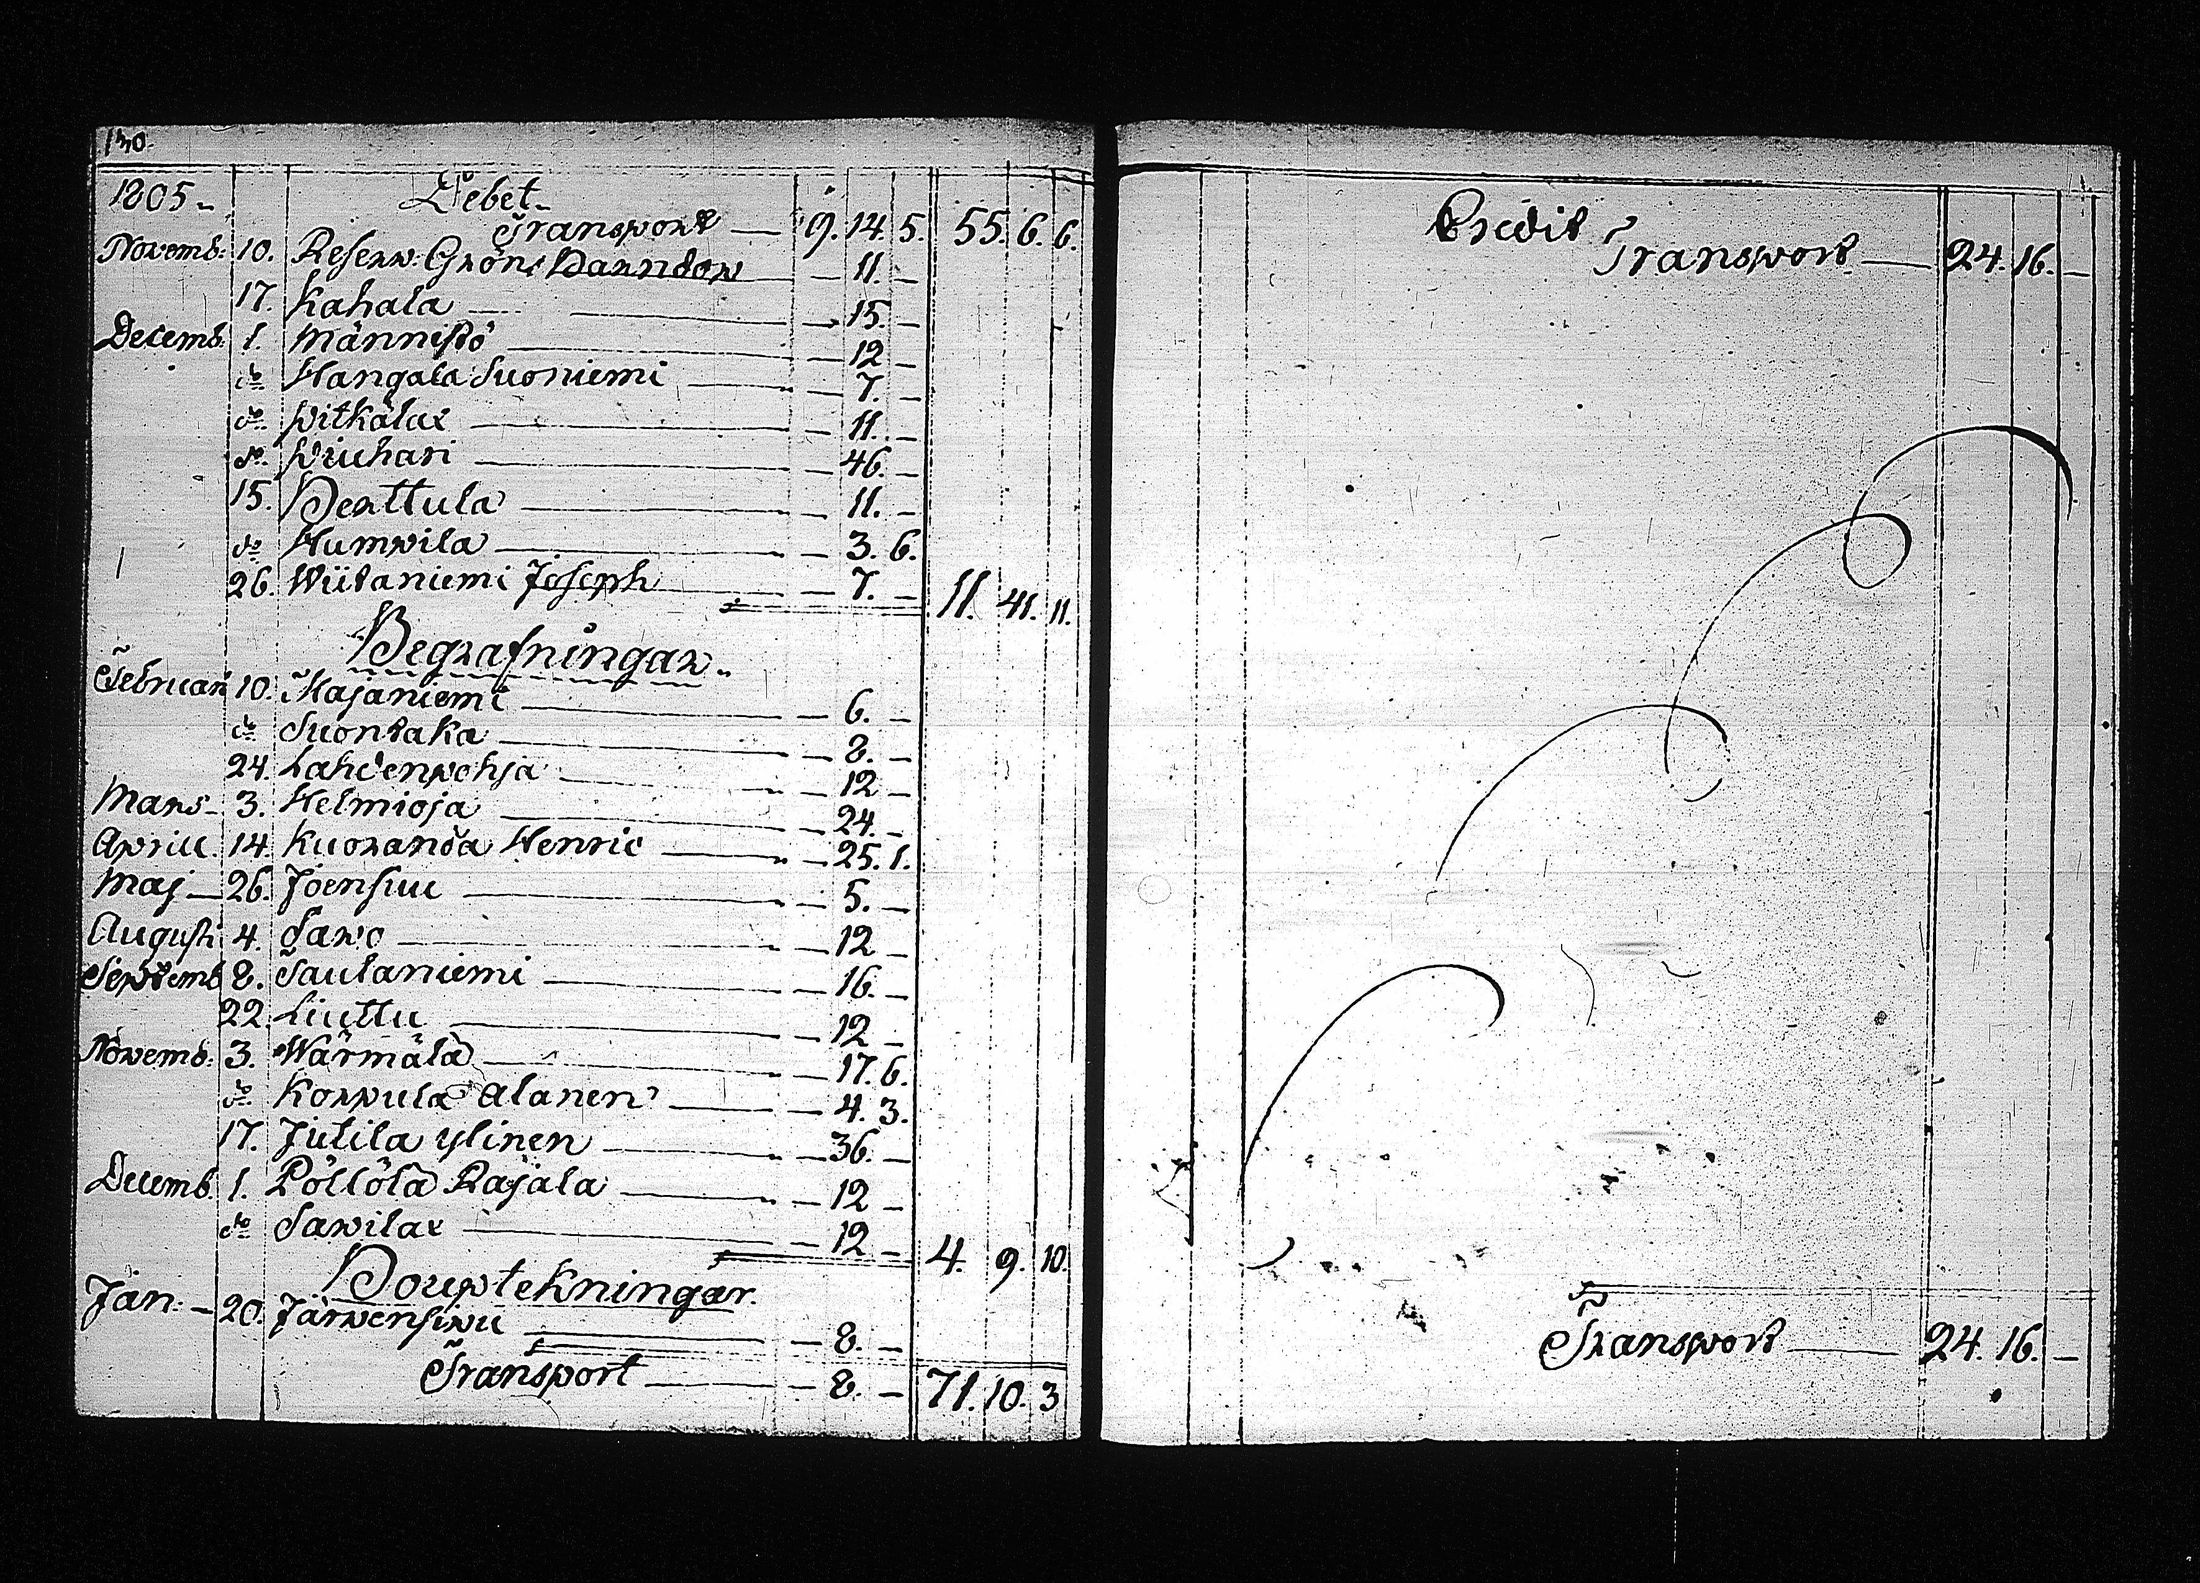 130.
1805. Debet.
Transport — 9. 14. 5. 55. 6. 6.
Novemb: 10. Reserv: Gröns Barndop — 11. —
17. Kahala — 15. —
Decemb. 1. Männistö — 12 —
do Hangala Suoniemi — 7. —
do Pitkälax — 11. —
do Wiuhari — 46. —
15. Perttula — 11. —
do Humpila — 3. 6.
26. Wiitaniemi Joseph — 7. — 11. 41. 11.
Begrafningar.
Februari 10. Majaniemi — 6. —
do Suontaka — 8. —
24. Lahdenpohja — 12 —
Mars — 3. Helmioja — 24. —
Aprill. 14. Kuoranda Henric — 25. 1.
Maj — 26. Joensuu — 5. —
Augusti 4. Sawo — 12 —
Septemb 8. Sautaniemi — 16. —
22. Liuttu — 12 —
Novemb: 3. Wärmälä — 17. 6.
do Korpula Alanen — 4. 3.
17. Jutila ylinen — 36. —
Decemb. 1. Pöllölä Rajala — 12 —
do Sawilax — 12 — 4. 9. 10.
Bouptekningar.
Jan: — 20. Järvensivu — 8. —
Transport — 8. — 71. 10. 3
Credit
Transport — 24. 16. —
Transport — 24. 16. —